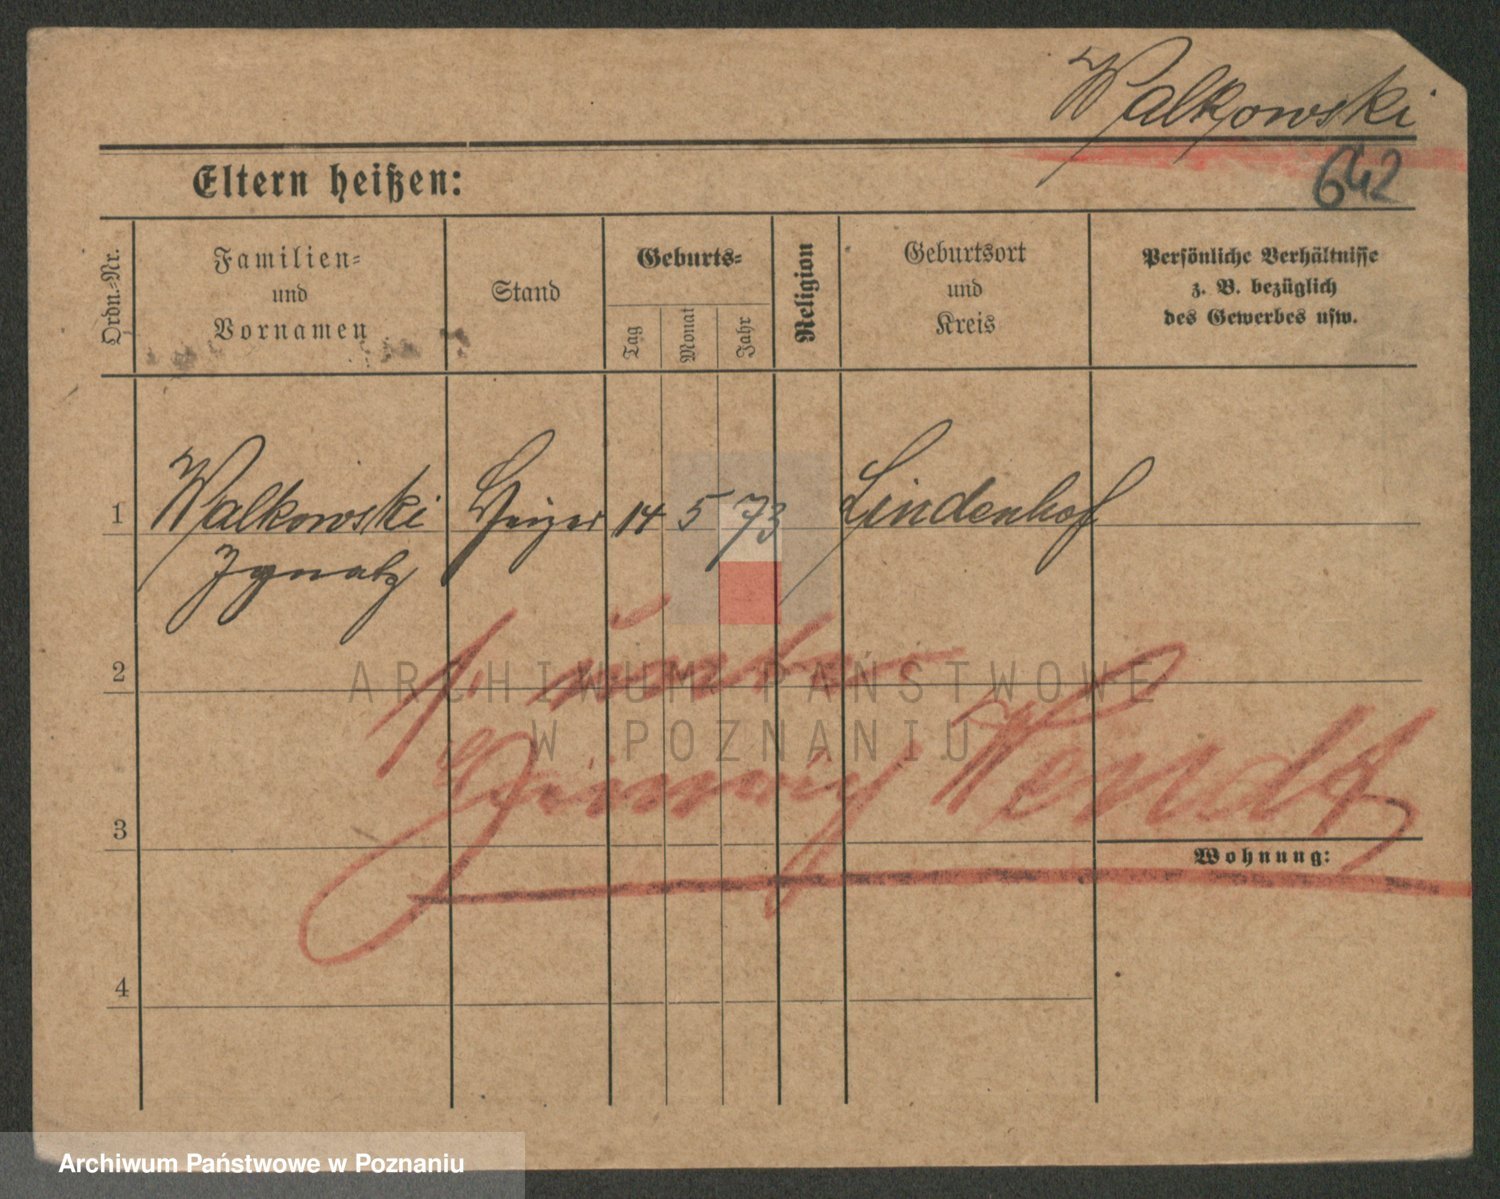 Walkowski
642
Eltern heißen:
Ordn.-Nr.
Familien-
und
Vornamen
Stand
Geburts-
Tag
Monat
Jahr
Religion
Geburtsort
und
Kreis
Persönliche Verhältnisse
z. B. bezüglich
des Gewerbes usw.
1 Walkowski Heizer 14 5 73 Lindenhof
Ignatz
2
3
4
Wendt
Wohnung:
ARCHIWUM PAŃSTWOWE
W POZNANIU
Archiwum Państwowe w Poznaniu